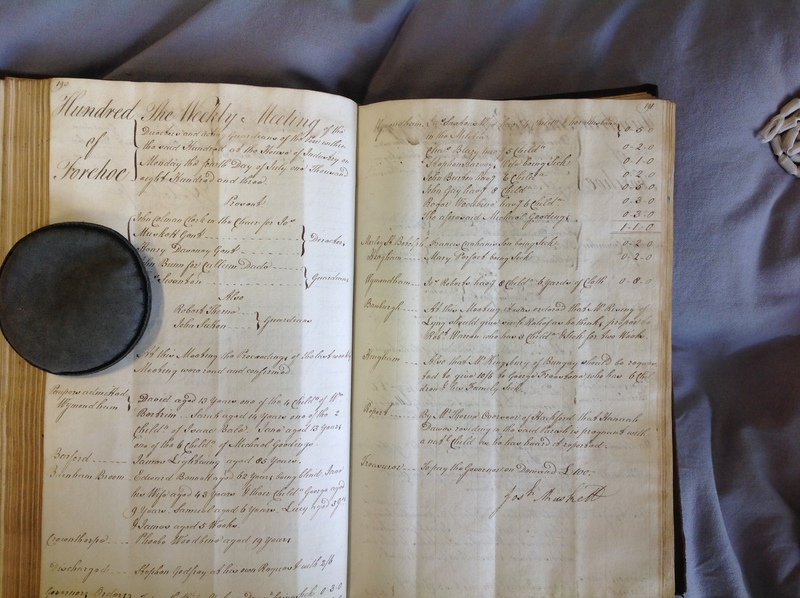 190
Hundred
of
Forehoe
The Weekly Meeting of the
Directors and Acting Guardians of the Poor within
the said Hundred at the House of Industry on
Monday the fourth Day of July one Thousand
eight Hundred and three
Present
John Colman Clerk in the Chair for Jos.
Muskett Gent
Henry Dunnay Gent
Directors
John Bunn for Cullum
Swanton
Guardians
Also
Robert Thorne
John Sutton
Guardians
At this Meeting the Proceedings of the last week
Meeting were read and confirmed
Paupers admitted
Wymondham
David aged 13 Years one of the 4 Childn. of Wm
Bertrim. Sarah aged 14 Years one of the 2
Childn. of Isaac Bald. Isaac aged 13 Years
one of the 6 Childn. of Michael Goodings
Barford
James Lightwing aged 85 Years.
Barnham Broom
Edward Bonnett aged 52 Years being blind Jane
his Wife aged 43 Years & three Childn. George aged
9 Years. Samuel aged 6 Years. Lucy aged 3 Yrs
& James aged 5 Weeks
Crownthorpe
Phoebe Woodbine aged 19 Years
Discharged
Stephen Godfrey at his own Request with 2/6
Governors Orders
191
Wymondham
in the Militia
0-5-0
Chas. Blazy hav'g 5 Childn.
0-2-0
Stephen Harvey Wife being Sick
0-1-0
John Burton hav'g 6 Childn.
0-2-0
John Gay hav'g 8 Childn.
0-5-0
Roger Woodbine hav'g 6 Childn.
0-3-0
The aforesaid Michael Goodings
0-3-0
1-1-0
Francis Cunham Son being Sick
0-2-0
Hingham
Mary Perfect being Sick
0-2-0
Wymondham
Jos. Roberts hav'g 8 Childn. 6 Yards of Cloth
0-8-0
Boxburgh
At this Meeting it was ordered that Mr. Rising of
Lyng should give such Relief as he thinks proper to
Robt. Warron who has 8 Childn. & Sick for two Weeks
Hingham
Also that Mr. Kingsbury of Bungay should be reques-
ted to give 10/6 to George Freestone who has 6 Chil-
dren & his Family Sick
Report
By Mr. Thorne Overseer of Hackford that Hannah
Dawes residing in the said Parish is pregnant with
a natl. Child as he has heard & reported.
Treasurer
To pay the Governor on Demand £100.
Josh. Muskett